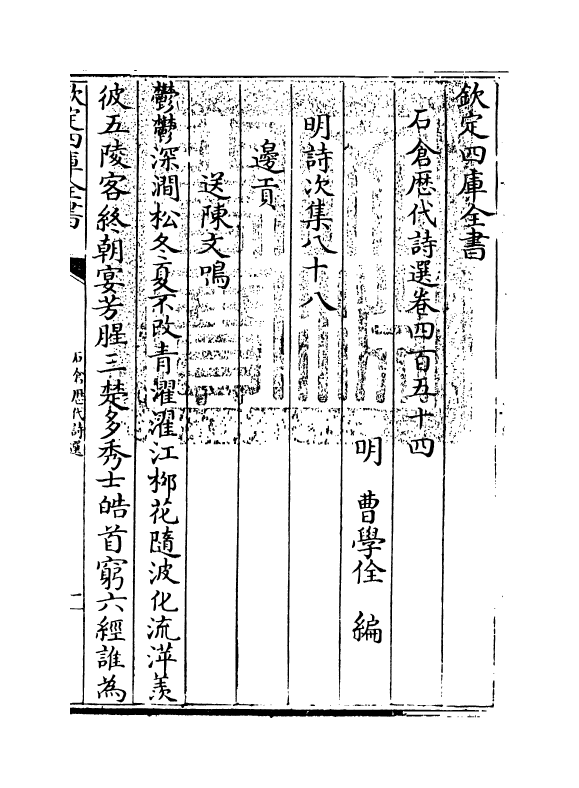 欽定四庫全書
石倉歷代詩選卷四百五十四
明 曹學佺 編
明詩次集八十八
邊貢
送陳文鳴
鬱鬱深澗松冬夏不改青濯濯江柳花隨波化流萍羨
彼五陵客終朝宴芳腥三楚多秀士皓首窮六經誰為
欽定四庫全書
石倉歷代詩選